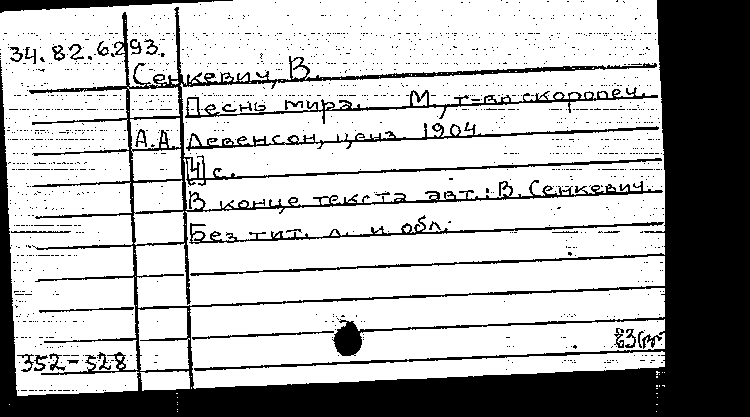 34.82.6293.
Сенкевич, В.
Песнь мира. М., т-во скоропеч.
А.А. Левенсон, ценз. 1904
[4] с.
В конце текста авт.: В. Сенкевич.
Без тит. л. и обл.
352-528